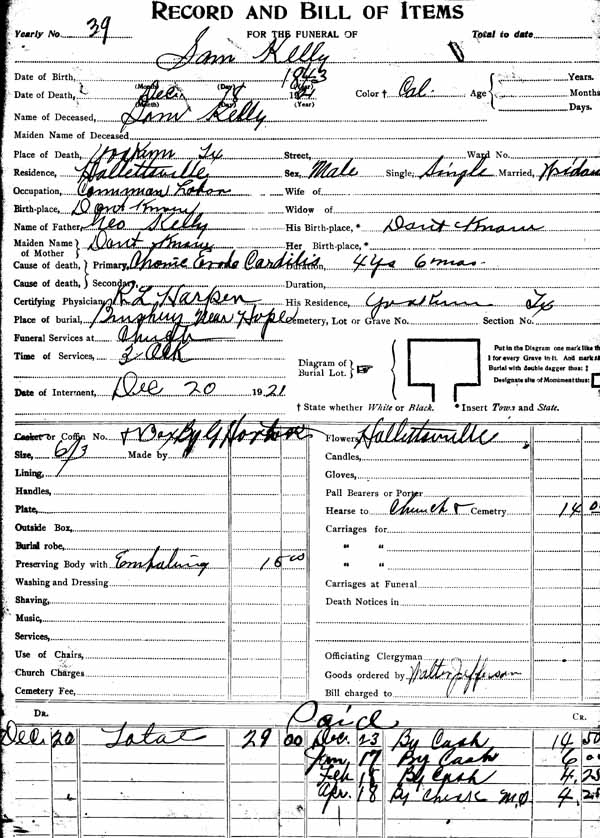 RECORD AND BILL OF ITEMS
Yearly No. 39 FOR THE FUNERAL OF Total to date
Sam Kelly
Date of Birth, 1843
(Month) (Day) (Year)
Date of Death, Dec 18 1921 Color † Col. Age { Years. Months Days.
(Month) (Day) (Year)
Name of Deceased, Sam Kelly
Maiden Name of Deceased
Place of Death, Yoakum Tx Street, Ward No.
Residence, Hallettsville Sex, Male Single, Single Married,
Occupation, Common Labor Wife of
Birth-place, Dont Know Widow of
Name of Father, Geo Kelly His Birth-place, * Dont Know
Maiden Name of Mother } Dont Know Her Birth-place, *
Cause of death, } Primary, Chronic Endo Carditis Duration, 4 ys 6 mos.
Cause of death, } Secondary, Duration,
Certifying Physician, R L Harper His Residence, Yoakum Tx
Place of burial, Near Hope Cemetery, Lot or Grave No. Section No.
Funeral Services at Church
Time of Services, 3 Clk
Diagram of Burial Lot. ☞
Put in the Diagram one mark like th
I for every Grave in it. And mark
Burial with double dagger thus: ‡
Designate site of Monument thus:
Date of Interment, Dec 20 1921
† State whether White or Black. * Insert Town and State.
Casket or Coffin No. & Box By G
Flowers, Hallettsville
Size, 6/3 Made by
Candles,
Lining,
Gloves,
Handles,
Pall Bearers or Porter
Plate,
Hearse to Church & Cemetry 14 0
Outside Box,
Carriages for
Burial robe,
" "
Preserving Body with Embalming 15 00
" "
Washing and Dressing
Carriages at Funeral
Shaving,
Death Notices in
Music,
Services,
Use of Chairs,
Officiating Clergyman
Church Charges
Goods ordered by Walter Jefferson
Cemetery Fee,
Bill charged to
DR. Paid CR.
Dec. 20 Total 29 00 Dec. 23 By Cash 14 50
Jan, 17 By Cash 6 0
Feb 18 By Cash 4.25
Apr. 18 By Check M.O 4.25